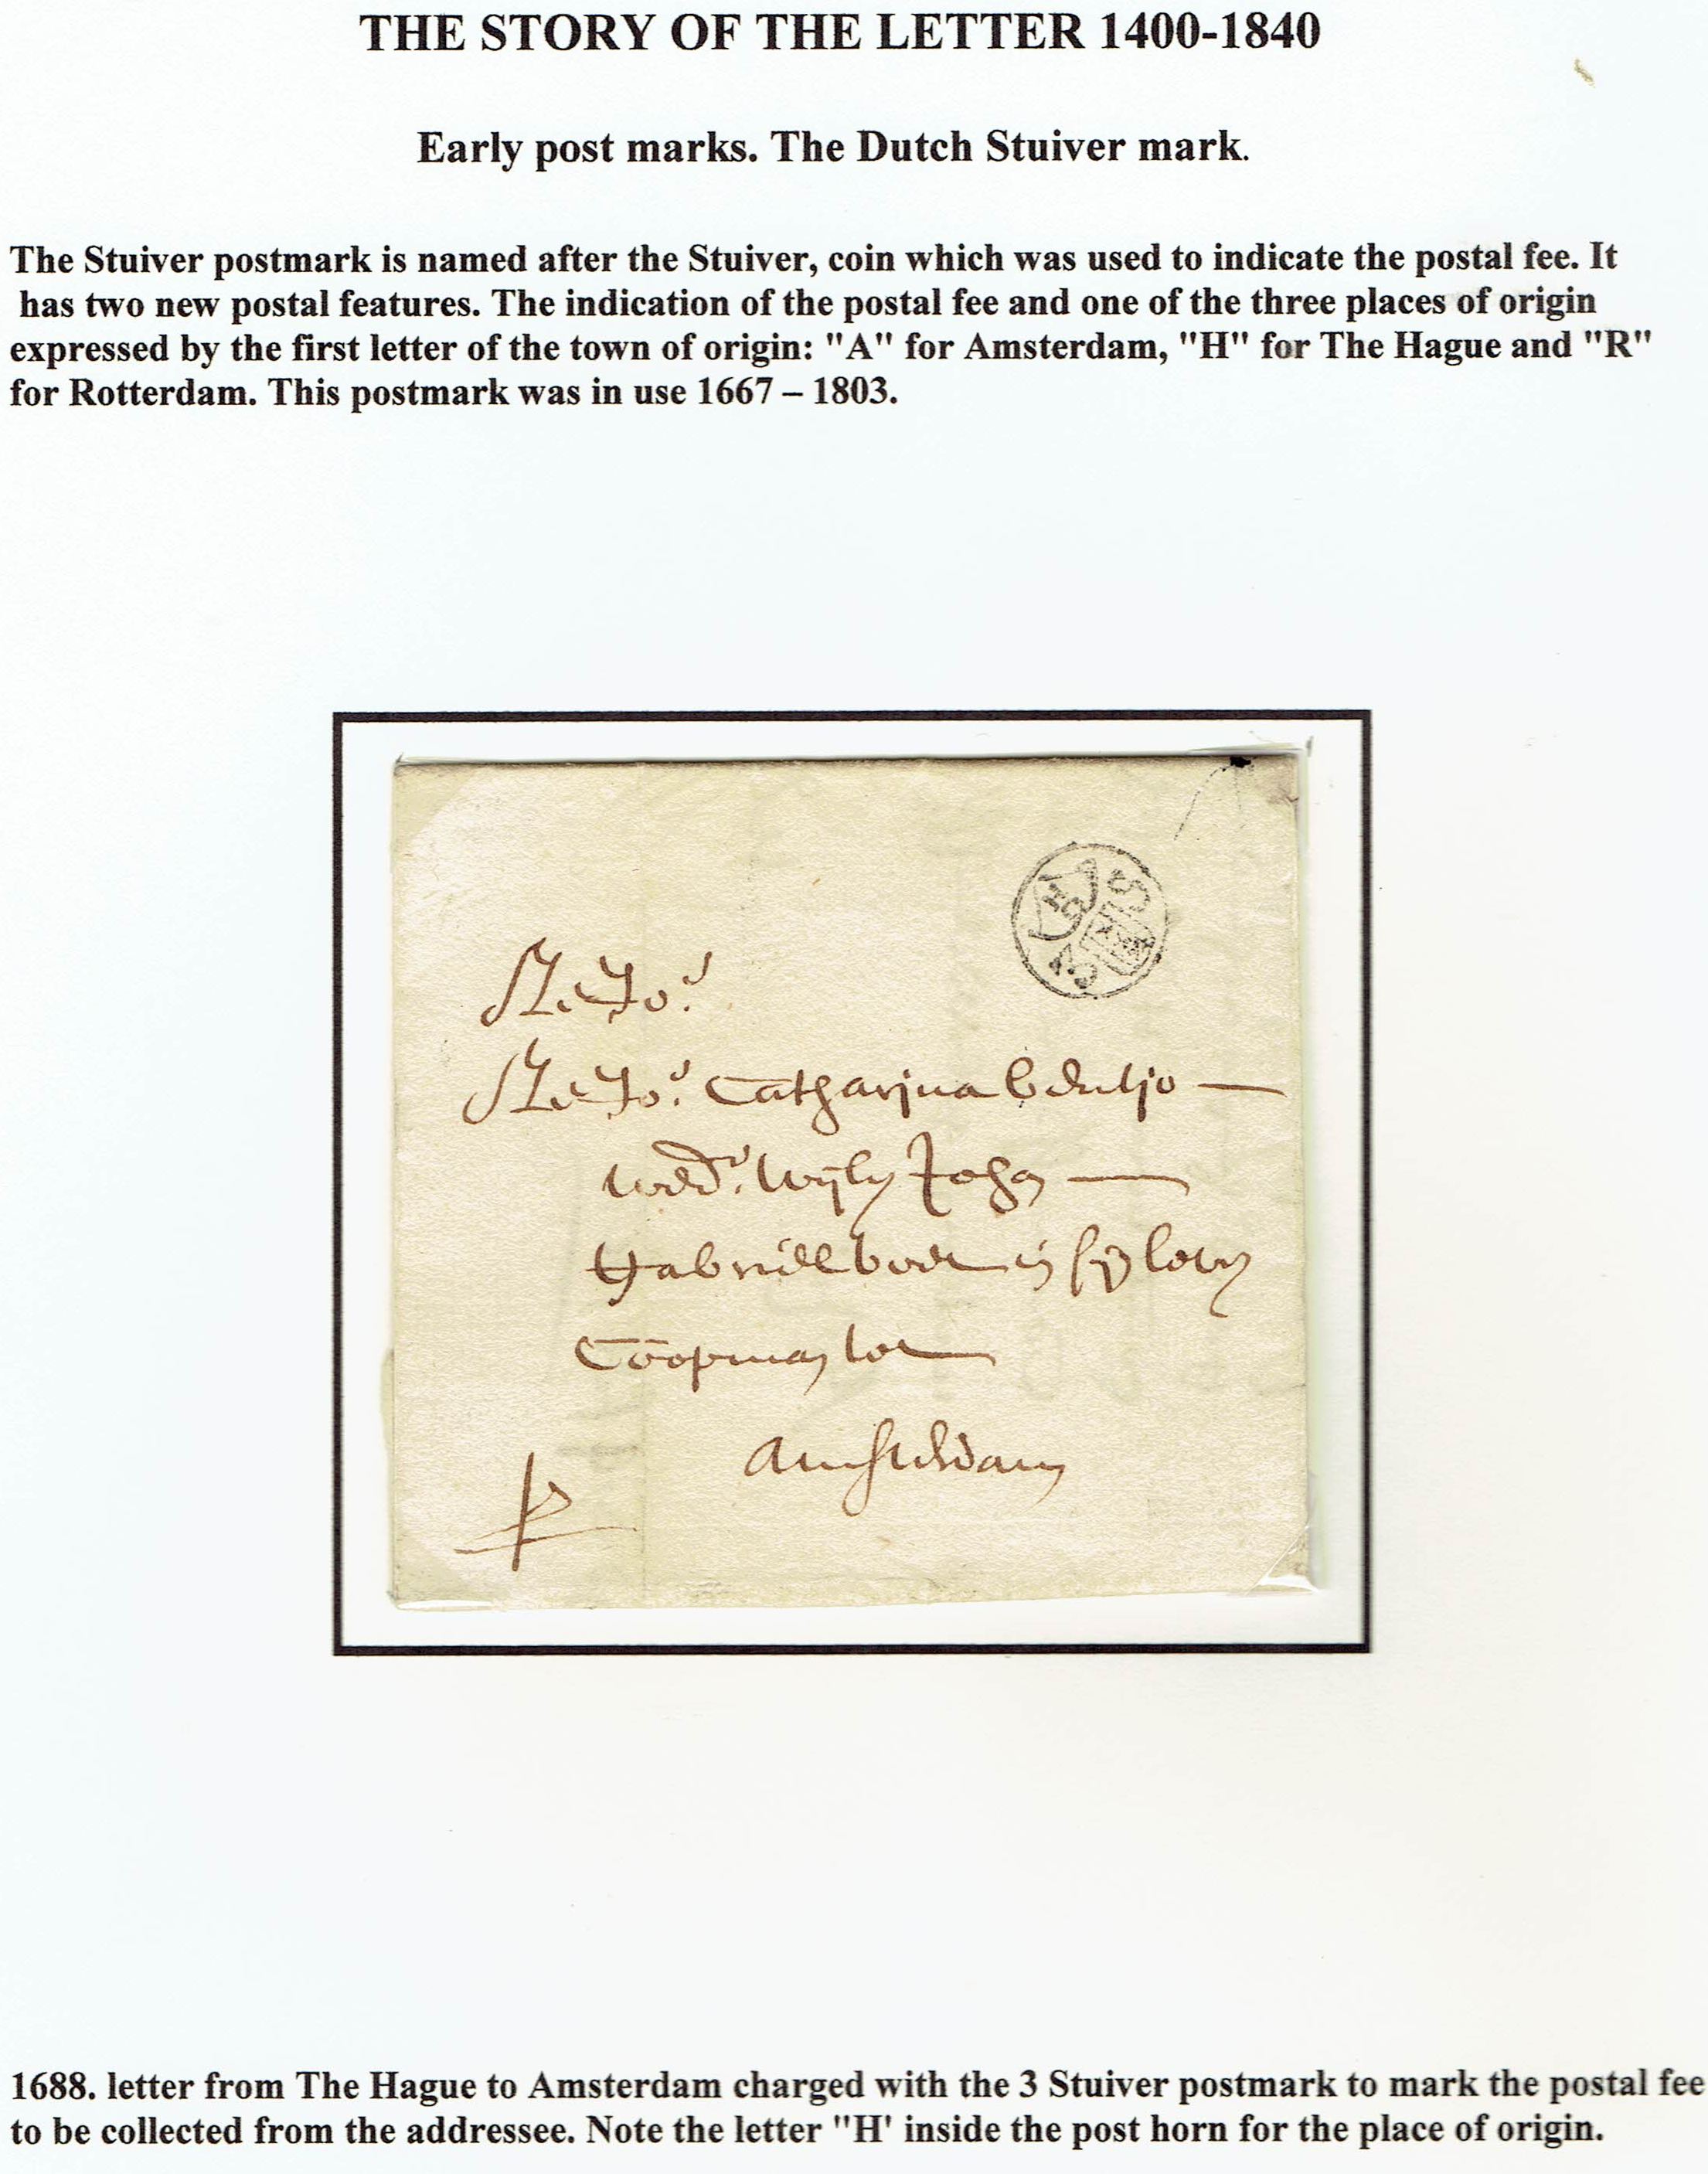 THE STORY OF THE LETTER 1400-1840
Early post marks. The Dutch Stuiver mark.
The Stuiver postmark is named after the Stuiver, coin which was used to indicate the postal fee. It
has two new postal features. The indication of the postal fee and one of the three places of origin
expressed by the first letter of the town of origin: "A" for Amsterdam, "H" for The Hague and "R"
for Rotterdam. This postmark was in use 1667 – 1803.
H
3 S
Catharina
Wed:
Gabriell
Coopman tot
Amsterdam
1688. letter from The Hague to Amsterdam charged with the 3 Stuiver postmark to mark the postal fee
to be collected from the addressee. Note the letter "H' inside the post horn for the place of origin.